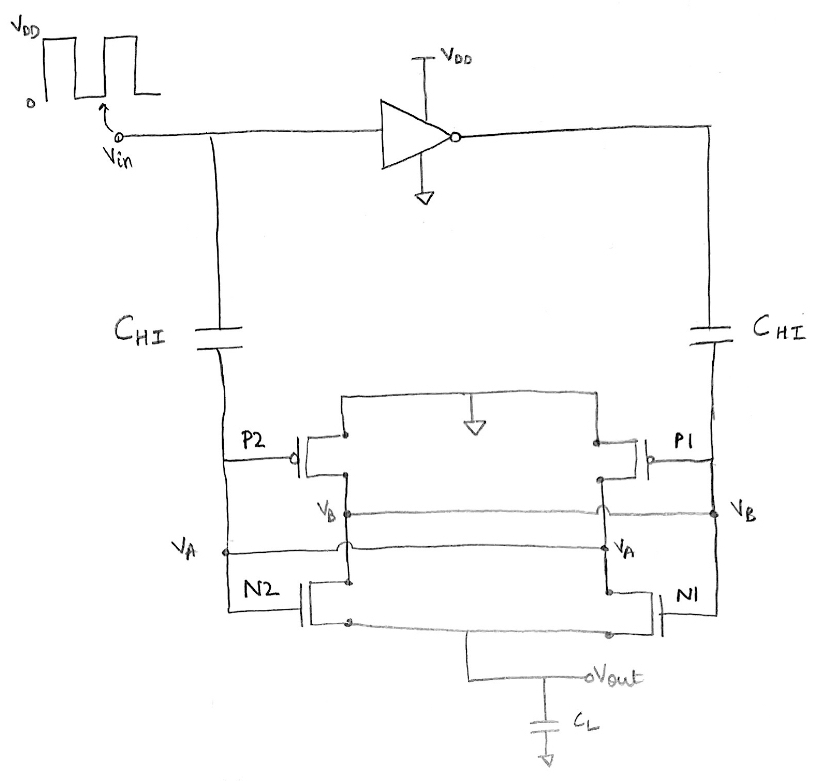 VDD
0
Vin
VDD
CHI
CHI
P2
P1
VB
VB
VA
VA
N2
N1
Vout
CL